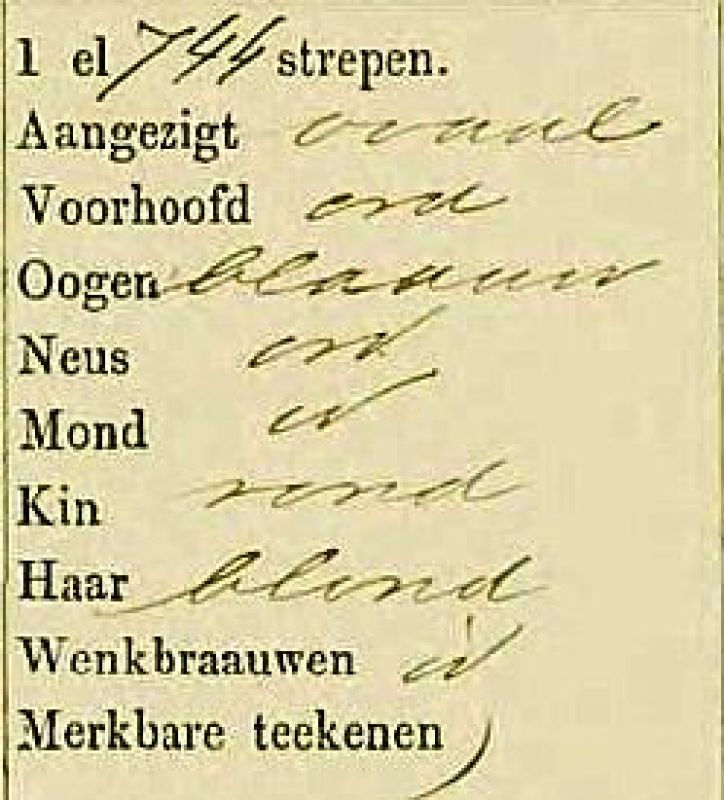 1 el 744 strepen.
Aangezigt ovaal
Voorhoofd ord
Oogen blaauw
Neus ord
Mond id
Kin rond
Haar blond
Wenkbraauwen id
Merkbare teekenen